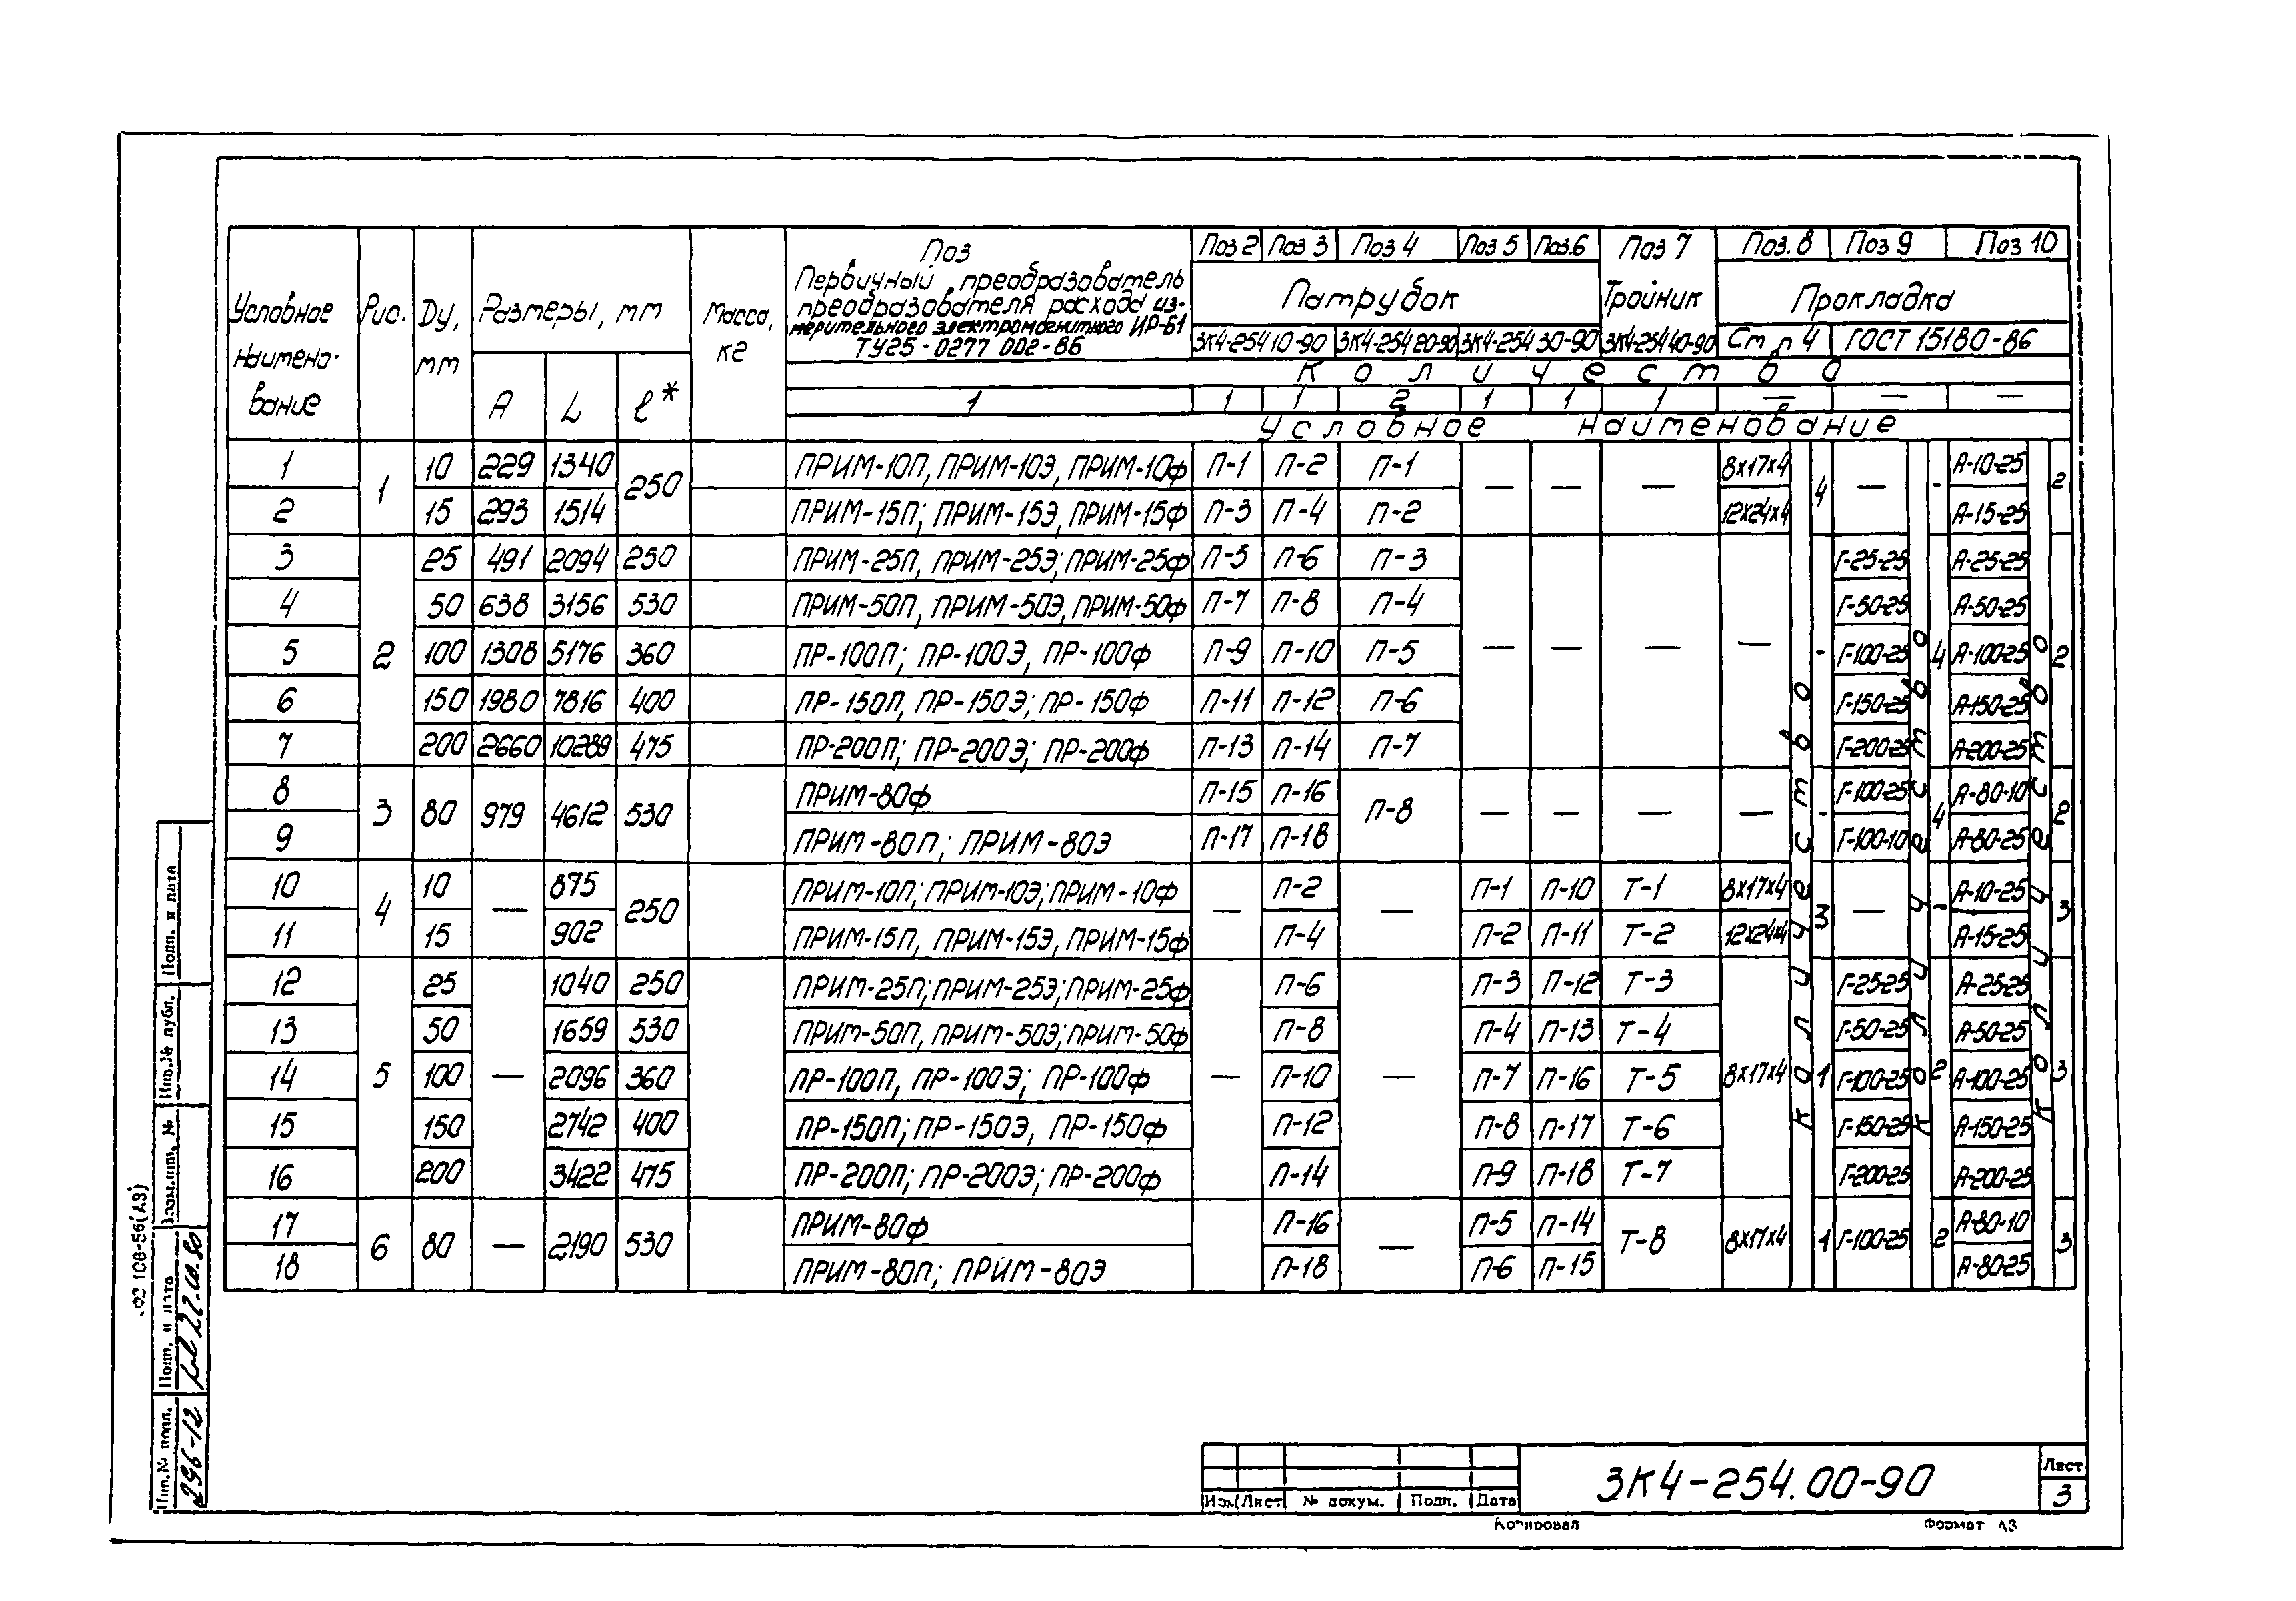 Условное наименование | Рис. | Ду, мм | Размеры, мм | Масса, кг | Поз Первичный преобразователь преобразователя расхода измерительного электромагнитного ИР-61 ТУ25-0277 002-86 | Поз 2 | Поз 3 | Поз 4 | Поз 5 | Поз.6 | Поз 7 | Поз. 8 | Поз 9 | Поз 10
Патрубок | Тройник | Прокладка
А | L | ℓ* | ЗК4-254 10-90 | ЗК4-254 20-90 | ЗК4-254 30-90 | ЗК4-254 40-90 | Ст п 4 | ГОСТ 15180-86
Количество
1 | 1 | 1 | 2 | 1 | 1 | 1 | — | — | —
Условное наименование
1 | 1 | 10 | 229 | 1340 | 250 | ПРИМ-10П, ПРИМ-10Э, ПРИМ-10ф | П-1 | П-2 | П-1 | — | — | — | 8х17х4 | 4 | — | - | А-10-25 | 2
2 | 15 | 293 | 1514 | ПРИМ-15П; ПРИМ-15Э, ПРИМ-15ф | П-3 | П-4 | П-2 | 12х24х4 | А-15-25
3 | 2 | 25 | 491 | 2094 | 250 | ПРИМ-25П, ПРИМ-25Э; ПРИМ-25ф | П-5 | П-6 | П-3 | — | — | — | — | - | Г-25-25 | 4 | А-25-25 | 2
4 | 50 | 638 | 3156 | 530 | ПРИМ-50П, ПРИМ-50Э, ПРИМ-50ф | П-7 | П-8 | П-4 | Г-50-25 | А-50-25
5 | 100 | 1308 | 5176 | 360 | ПР-100П; ПР-100Э, ПР-100ф | П-9 | П-10 | П-5 | Г-100-25 | А-100-25
6 | 150 | 1980 | 7816 | 400 | ПР-150П, ПР-150Э; ПР-150ф | П-11 | П-12 | П-6 | Г-150-25 | А-150-25
7 | 200 | 2660 | 10289 | 475 | ПР-200П; ПР-200Э; ПР-200ф | П-13 | П-14 | П-7 | Г-200-25 | А-200-25
8 | 3 | 80 | 979 | 4612 | 530 | ПРИМ-80ф | П-15 | П-16 | П-8 | — | — | — | — | - | Г-100-25 | 4 | А-80-10 | 2
9 | ПРИМ-80П; ПРИМ-80Э | П-17 | П-18 | Г-100-10 | А-80-25
10 | 4 | 10 | — | 875 | 250 | ПРИМ-10П; ПРИМ-10Э; ПРИМ-10ф | — | П-2 | — | П-1 | П-10 | Т-1 | 8х17х4 | 3 | — | - | А-10-25 | 3
11 | 15 | 902 | ПРИМ-15П, ПРИМ-15Э, ПРИМ-15ф | П-4 | П-2 | П-11 | Т-2 | 12х24х4 | А-15-25
12 | 5 | 25 | — | 1040 | 250 | ПРИМ-25П; ПРИМ-25Э; ПРИМ-25ф | — | П-6 | — | П-3 | П-12 | Т-3 | 8х17х4 | 1 | Г-25-25 | 2 | А-25-25 | 3
13 | 50 | 1659 | 530 | ПРИМ-50П, ПРИМ-50Э; ПРИМ-50ф | П-8 | П-4 | П-13 | Т-4 | Г-50-25 | А-50-25
14 | 100 | 2096 | 360 | ПР-100П, ПР-100Э; ПР-100ф | П-10 | П-7 | П-16 | Т-5 | Г-100-25 | А-100-25
15 | 150 | 2742 | 400 | ПР-150П; ПР-150Э, ПР-150ф | П-12 | П-8 | П-17 | Т-6 | Г-150-25 | А-150-25
16 | 200 | 3422 | 475 | ПР-200П; ПР-200Э; ПР-200ф | П-14 | П-9 | П-18 | Т-7 | Г-200-25 | А-200-25
17 | 6 | 80 | — | 2190 | 530 | ПРИМ-80ф | П-16 | — | П-5 | П-14 | Т-8 | 8х17х4 | 1 | Г-100-25 | 2 | А-80-10 | 3
18 | ПРИМ-80П; ПРИМ-80Э | П-18 | П-6 | П-15 | А-80-25
Количество
Количество
Количество
Подп. и дата
Инв.№ дубл.
Взам.инв. №
Подп. и дата
22.10.90
Инв.№ подл.
296-12
Ф2 108-56(А3)
Изм | Лист | № докум. | Подп. | Дата
ЗК4-254.00-90
Лист
3
Копировал
Формат А3